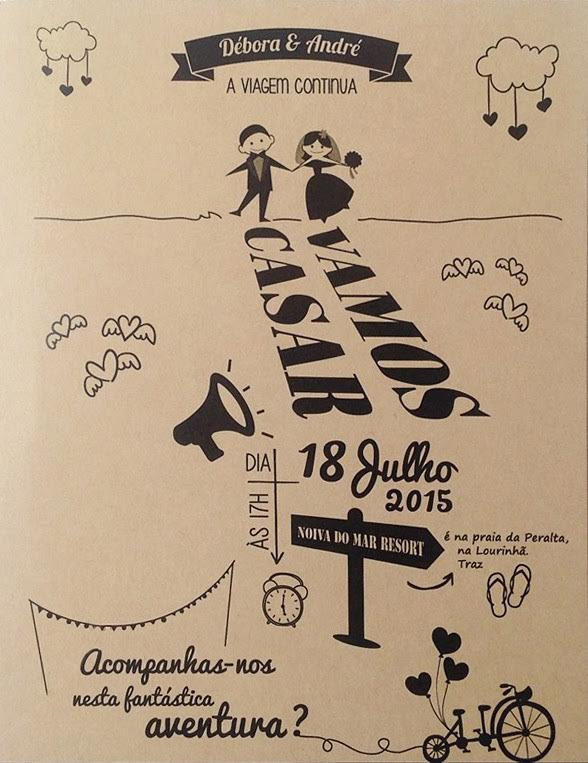 Débora & André
A VIAGEM CONTINUA
VAMOS
CASAR
DIA 18 Julho
2015
ÀS 17H
NOIVA DO MAR RESORT
é na praia da Peralta,
na Lourinhã.
Traz
Acompanhas-nos
nesta fantástica
aventura?